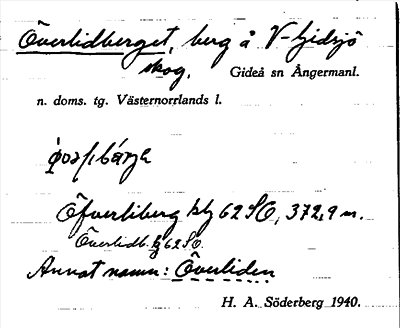 Överlidberget, berg å V-Gidsjö
skog. Gideå sn Ångermanl.
n. doms. tg. Västernorrlands l.
Öfverliberg kbl 62 SO, 372,9 m.
Överlidb. kbl 62 SO.
Annat namn: Överliden
H. A. Söderberg 1940.